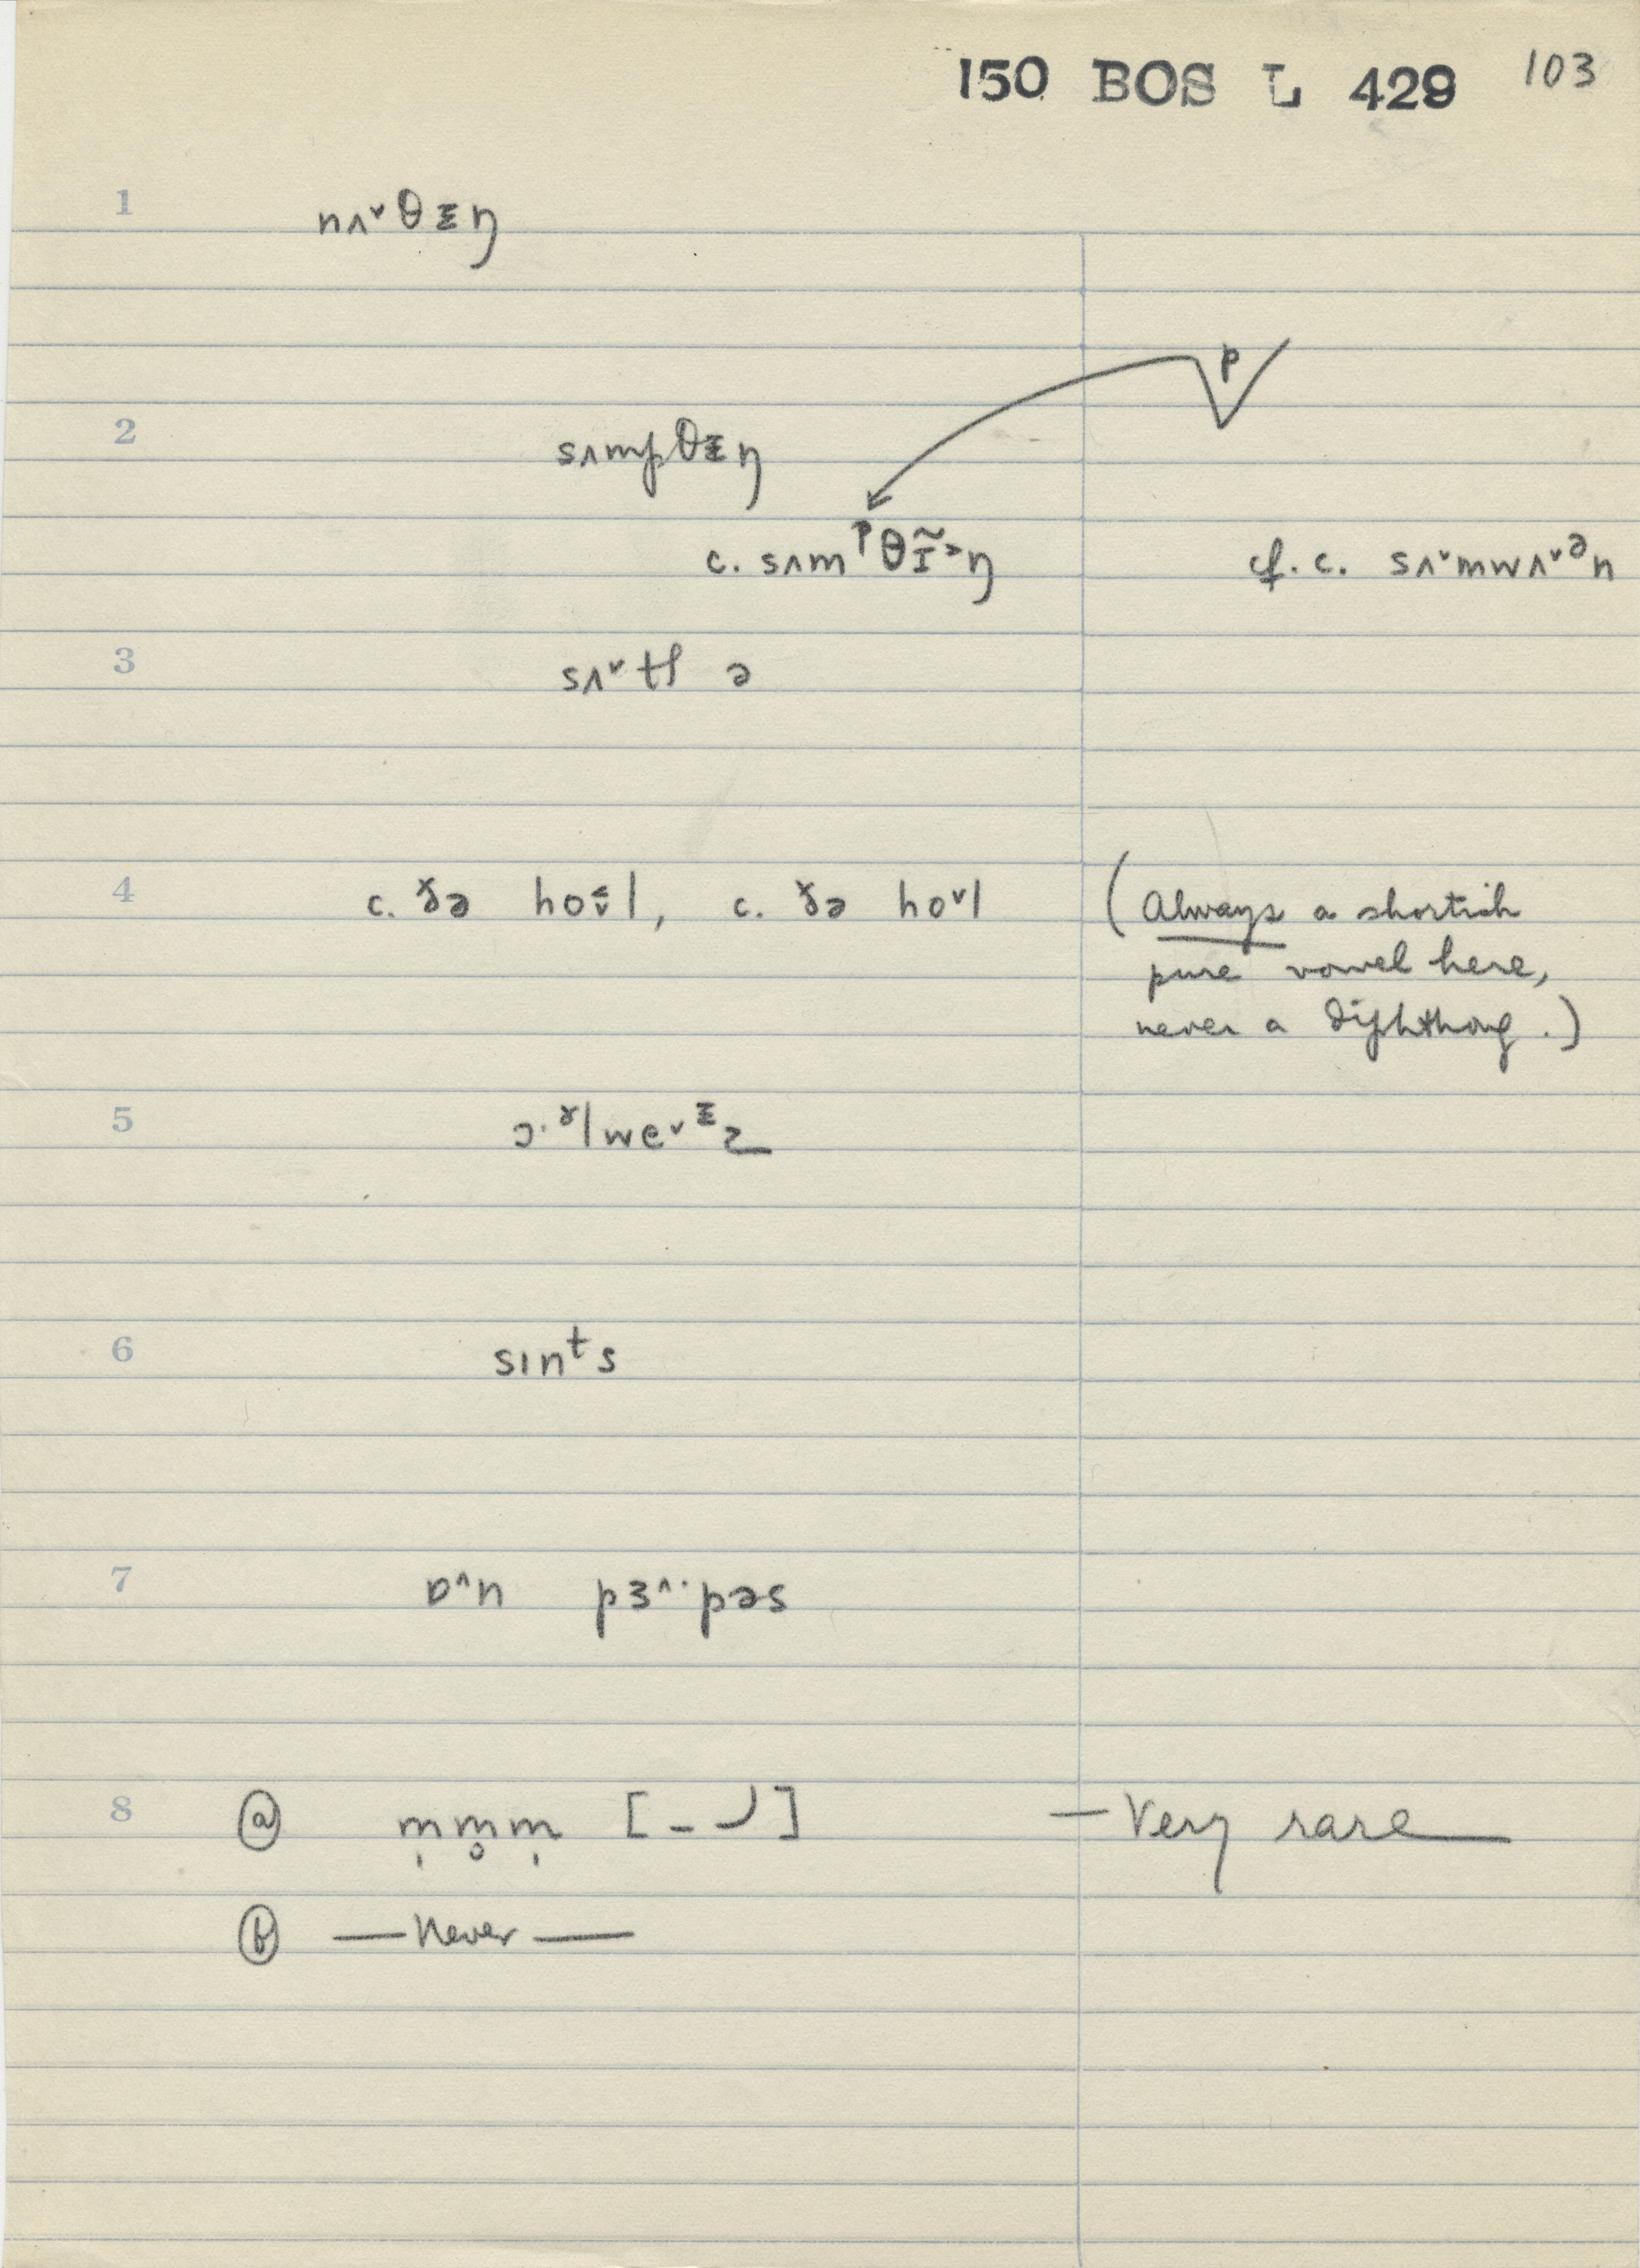 150 BOS L 429 103
1 nʌ˅θᵻŋ
p
2 sʌmpθᵻŋ
c. sʌmᵖθɪ̃˃ŋ cf. c. sʌ˅mwʌ˅ᵊn
3 sʌ˅tʃ ə
4 c. ðə ho˅l, c. ðə ho˅l (Always a shortish
pure vowel here,
never a diphthong.)
5
6 sɪnᵗs
7 ɒ˄n pɜ˄·pəs
8 ⓐ m̩m̥m̩ [–⌣] — Very rare —
ⓑ — Never —